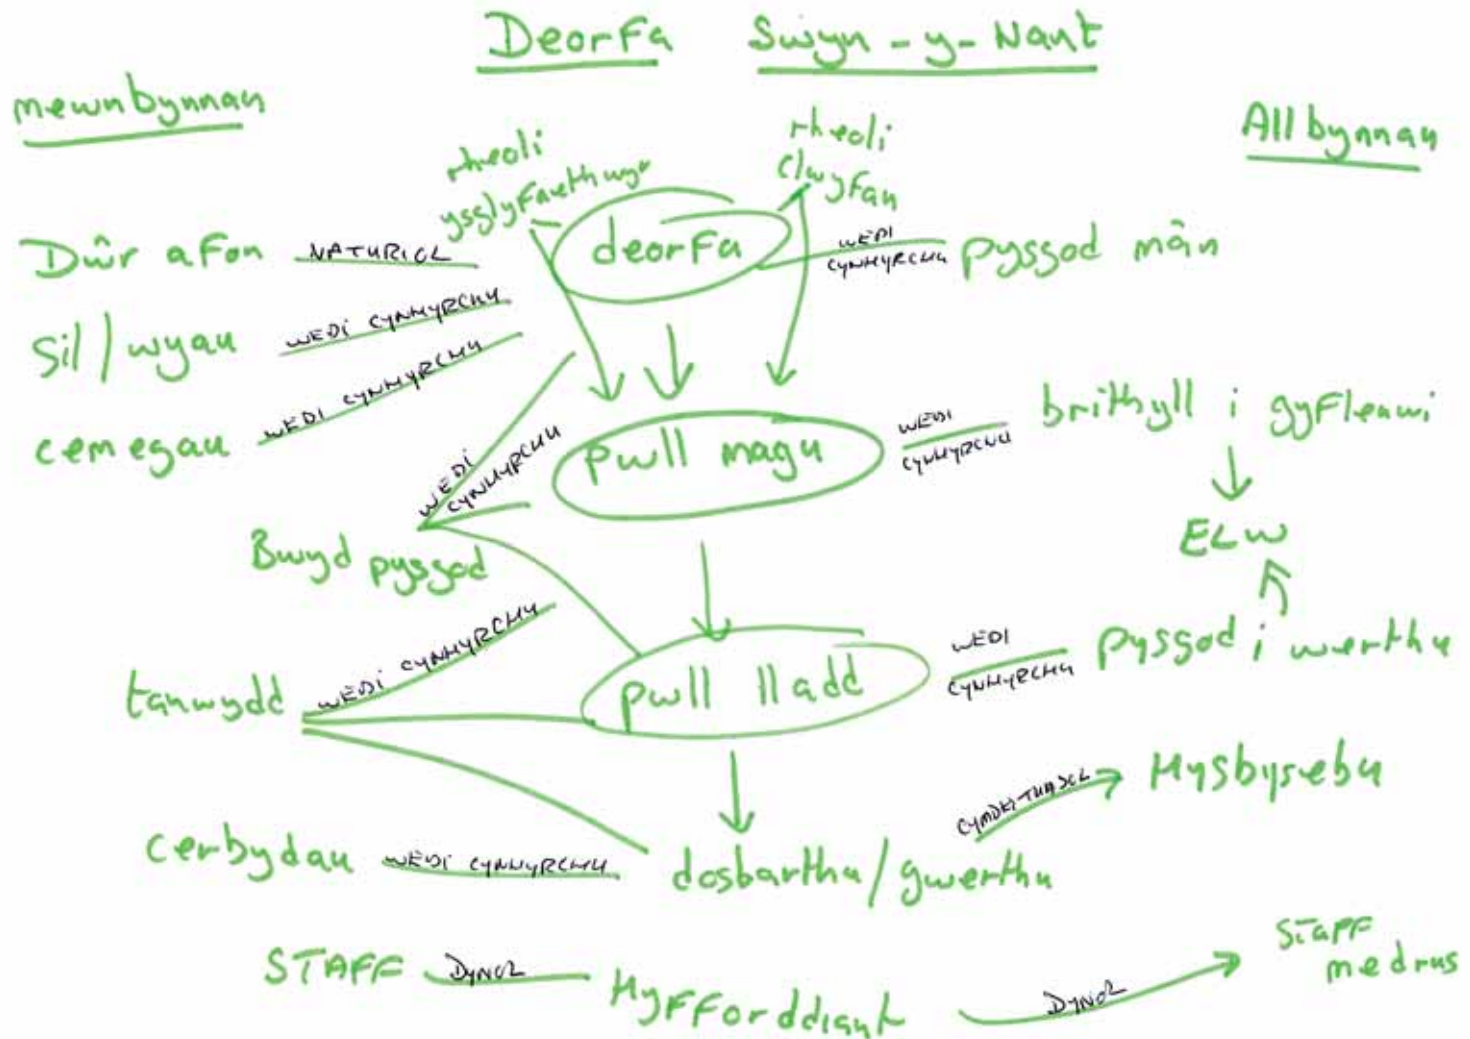 Deorfa Swyn-y-Nant
mewnbynnau
Allbynnau
rheoli
ysglyfaethwyr
rheoli
clwyfau
deorfa
Dŵr afon NATURIOL
WEDI
CYNHYRCHU pysgod mân
Sil/wyau WEDI CYNHYRCHU
cemegau WEDI CYNHYRCHU
pwll magu
WEDI
CYNHYRCHU
brithyll i gyfleawi
WEDI
CYNHYRCHU
Bwyd pysgod
ELW
tanwydd WEDI CYNHYRCHU
pwll lladd
WEDI
CYNHYRCHU
pysgod i werthu
Hysbysebu
cerbydau WEDI CYNHYRCHU
dosbarthu/gwerthu
STAFF DYNOL
Hyfforddiant
DYNOL
STAFF
medrus